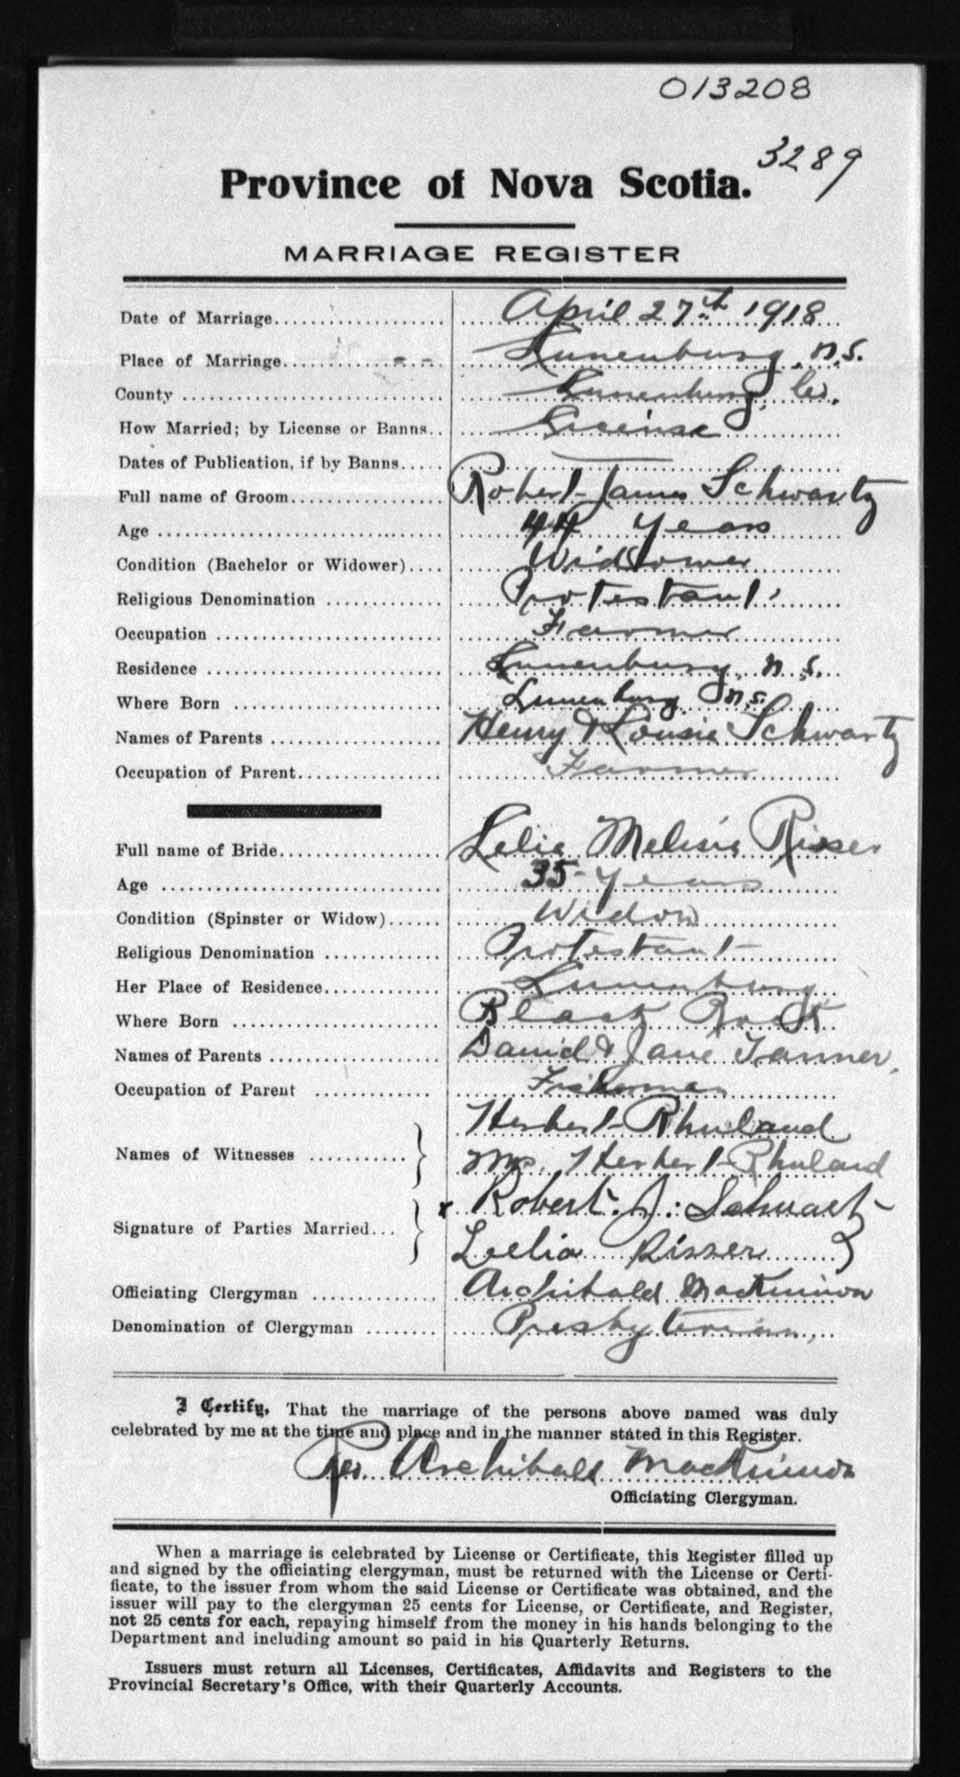 013208
3289
Province of Nova Scotia.
MARRIAGE REGISTER
Date of Marriage.................... April 27th 1918
Place of Marriage.................... Lunenburg, N.S.
County .................... Lunenburg, Co.
How Married; by License or Banns.. License
Dates of Publication, if by Banns..... —
Full name of Groom.................... Robert James Schwartz
Age .................... 44 years
Condition (Bachelor or Widower).... Widower
Religious Denomination .................... Protestant
Occupation .................... Farmer
Residence .................... Lunenburg, N.S.
Where Born .................... Lunenburg N.S.
Names of Parents .................... Henry & Lousie Schwartz
Occupation of Parent.................... Farmer
Full name of Bride.................... Lelia Melinia Risser
Age .................... 35 years
Condition (Spinster or Widow)...... Widow
Religious Denomination .................... Protestant
Her Place of Residence.................... Lunenburg
Where Born .................... Black Rock
Names of Parents .................... David & Jane Tanner,
Occupation of Parent .................... Fisherman
Names of Witnesses .................... Herbert Rhuland
Mrs. Herbert Rhuland
Signature of Parties Married... x Robert. J. Schwartz
Leelia Risser
Officiating Clergyman .................... Archibald MacKinnon
Denomination of Clergyman ........ Presbyterian,
I Certify, That the marriage of the persons above named was duly
celebrated by me at the time and place and in the manner stated in this Register.
Rev. Archibald MacKinnon
Officiating Clergyman.
When a marriage is celebrated by License or Certificate, this Register filled up
and signed by the officiating clergyman, must be returned with the License or Certi-
ficate, to the issuer from whom the said License or Certificate was obtained, and the
issuer will pay to the clergyman 25 cents for License, or Certificate, and Register,
not 25 cents for each, repaying himself from the money in his hands belonging to the
Department and including amount so paid in his Quarterly Returns.
Issuers must return all Licenses, Certificates, Affidavits and Registers to the
Provincial Secretary's Office, with their Quarterly Accounts.